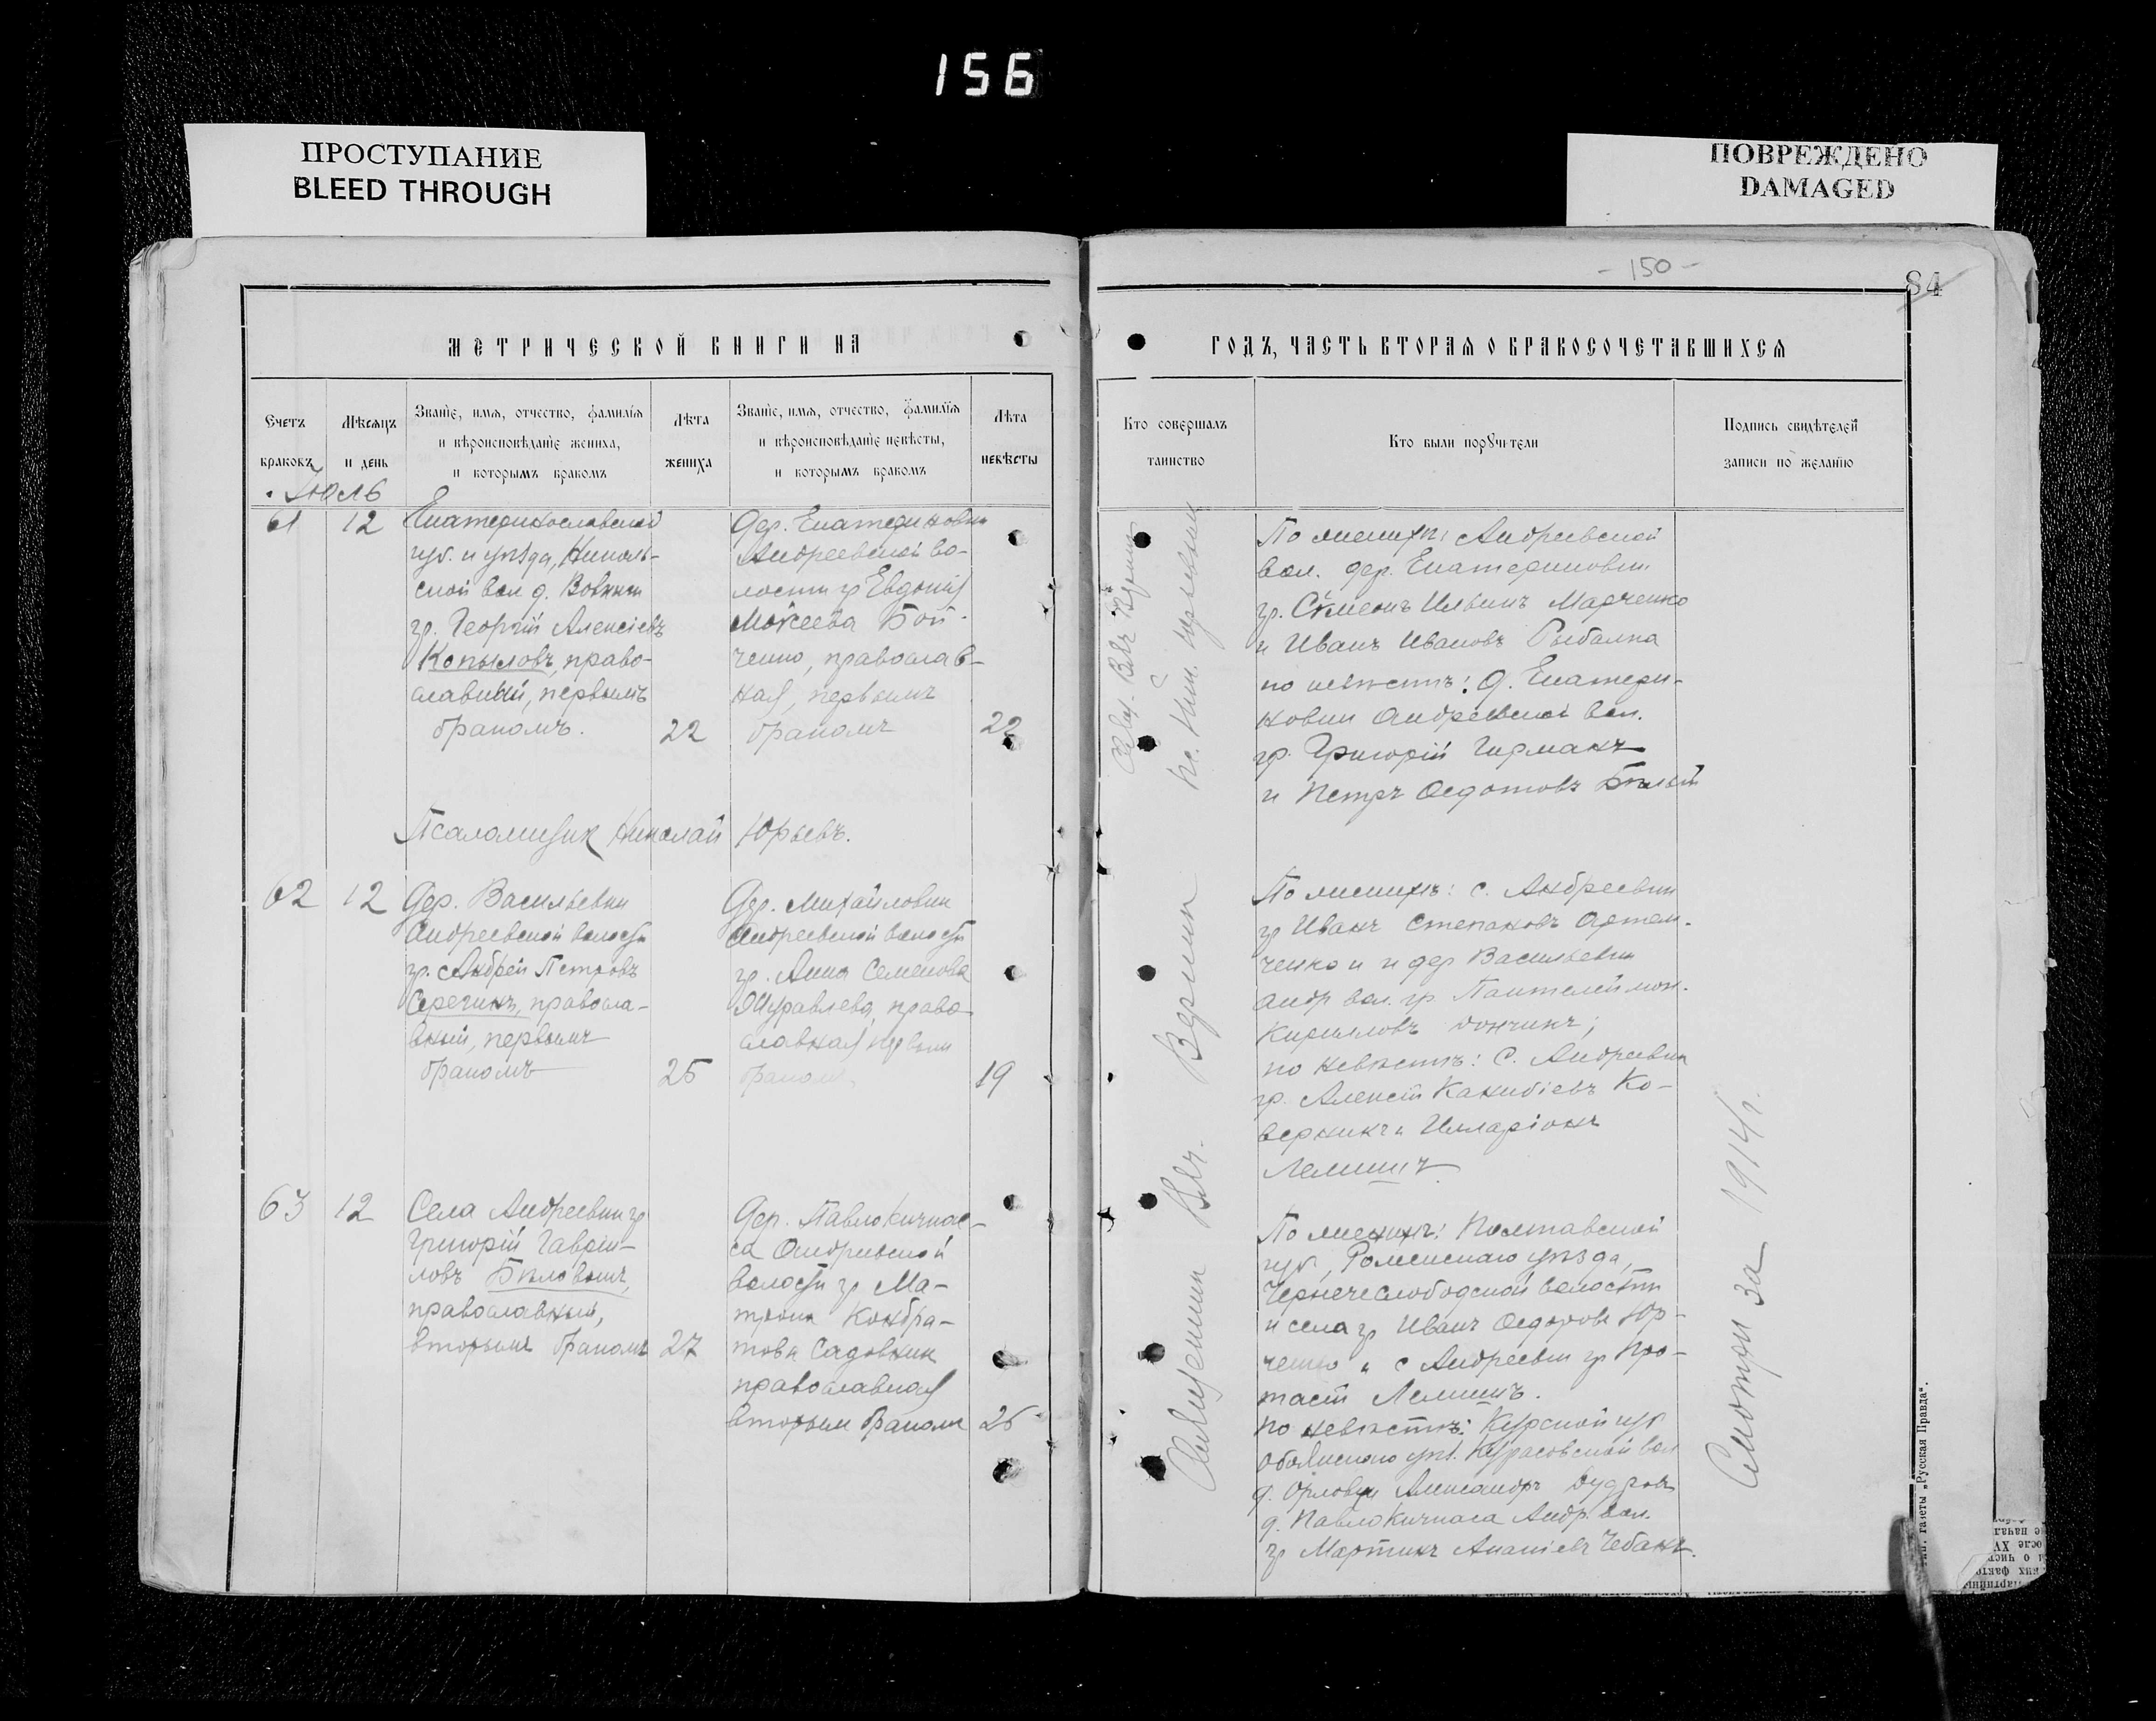 156
ПРОСТУПАНИЕ
BLEED THROUGH
ПОВРЕЖДЕНО
DAMAGED
- 150 -
84
МЕТРИЧЕСКОЙ КНИГИ НА
ГОДЪ, ЧАСТЬ ВТОРАЯ О БРАКОСОЧЕТАВШИХСЯ
Счетъ браковъ
Мѣсяцъ и день
Званіе, имя, отчество, фамилія
и вѣроисповѣданіе жениха,
и которымъ бракомъ
Лѣта жениха
Званіе, имя, отчество, фамилія
и вѣроисповѣданіе невѣсты,
и которымъ бракомъ
Лѣта невѣсты
Кто совершалъ таинство
Кто были поручители
Подпись свидѣтелей
записи по желанію
Июль
61
12
Екатеринославской
губ. и уѣзда, Николь-
ской вол д. Вовниги
гр. Георгій Алексіевъ
Копыловъ, право-
славный, первымъ
бракомъ.
22
Дер. Екатериновки
Андреевской во-
лости гр Евдокія
Мокеева Бой-
ченко, православ-
ная, первымъ
бракомъ
22
По женихѣ: Андреевской
вол. дер. Екатериновки
гр. Сѵмеонъ Ильинъ Марченко
и Иванъ Ивановъ Рыбалка
по невѣстѣ: д. Екатери-
новки Андреевской вол.
гр. Григорій Гирманъ
и Петръ Федотовъ Бѣлый
Псаломщик Николай Юрьевъ.
62
12
Дер. Васильевки
Андреевской волости
гр. Андрей Петровъ
Серегинъ, правосла-
вный, первымъ
бракомъ
25
Дер. Михайловки
Андреевской волости
гр. Анна Семенова
Журавлева, право
славная первым
браком
19
По женихѣ: с. Андреевки
гр Иванъ Степановъ Артем-
ченко и дер Васильевки
Андр вол. гр. Пантелеймон.
Кирилловъ Дончинъ;
по невѣстѣ: С. Андреевки
гр. Алексій Ко-
верникъ и Илларіонъ
Лемишъ
63
12
Села Андреевки гр
Григорій Гаврии-
ловъ Бѣловолъ,
православный,
вторымъ бракомъ
27
Дер. Павлокичка-
са Андреевской
волости гр Ма-
трона Кондра-
това Садовник
православная
вторымъ бракомъ
26
По женихѣ: Полтавской
губ, Роменскаго уѣзда,
Чернечеслободской волости
и села гр Иванъ Федоровъ Юр-
ченко и с Андреевки гр Про-
тасій Лемишъ.
по невѣстѣ: Курской губ
Обоянскаго уѣз. Курасовской вол
д. Орловки Александръ
д. Павлокичкаса Андр. вол.
гр Мартинъ Ананіевъ Чебанъ.
Священник Вяч. Верзин
Смотри за 1914 г.
газеты „Русская Правда“.